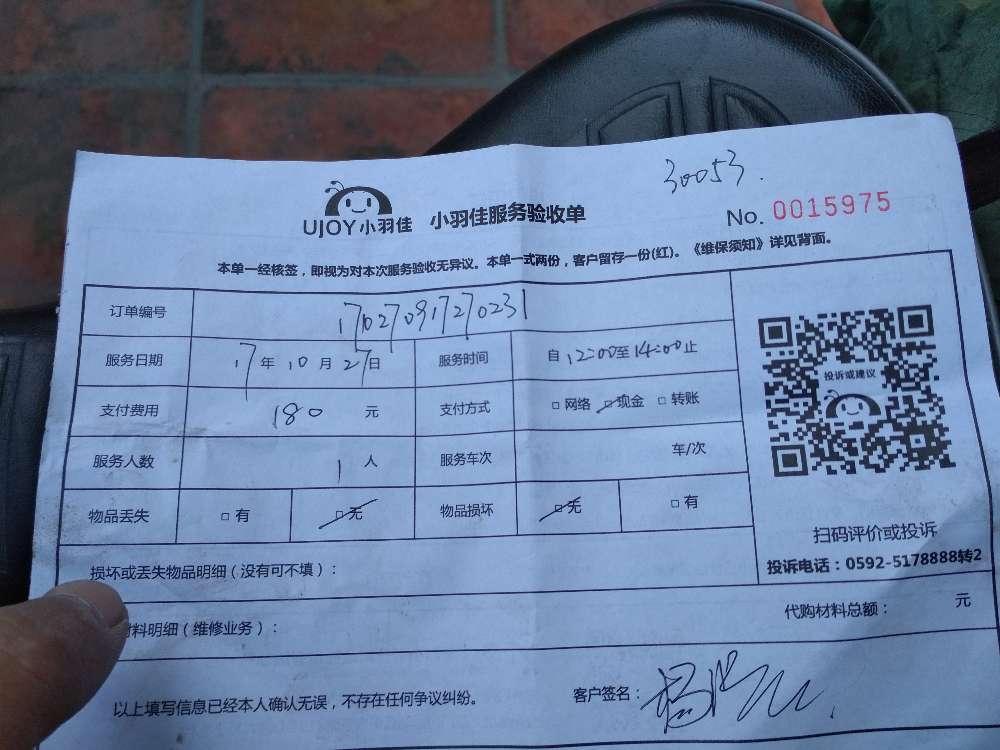 30053.
UJOY小羽佳 小羽佳服务验收单
No. 0015975
本单一经核签，即视为对本次服务验收无异议。本单一式两份，客户留存一份(红)。《维保须知》详见背面。
订单编号 171027091270231
服务日期 17年10月27日 服务时间 自12:00至14:00止
支付费用 180元 支付方式 □网络 □现金 □转账
服务人数 1人 服务车次 车/次
物品丢失 □有 □无 物品损坏 □无 □有
投诉或建议
扫码评价或投诉
投诉电话：0592-5178888转2
损坏或丢失物品明细（没有可不填）：
材料明细（维修业务）： 代购材料总额： 元
以上填写信息已经本人确认无误，不存在任何争议纠纷。 客户签名：